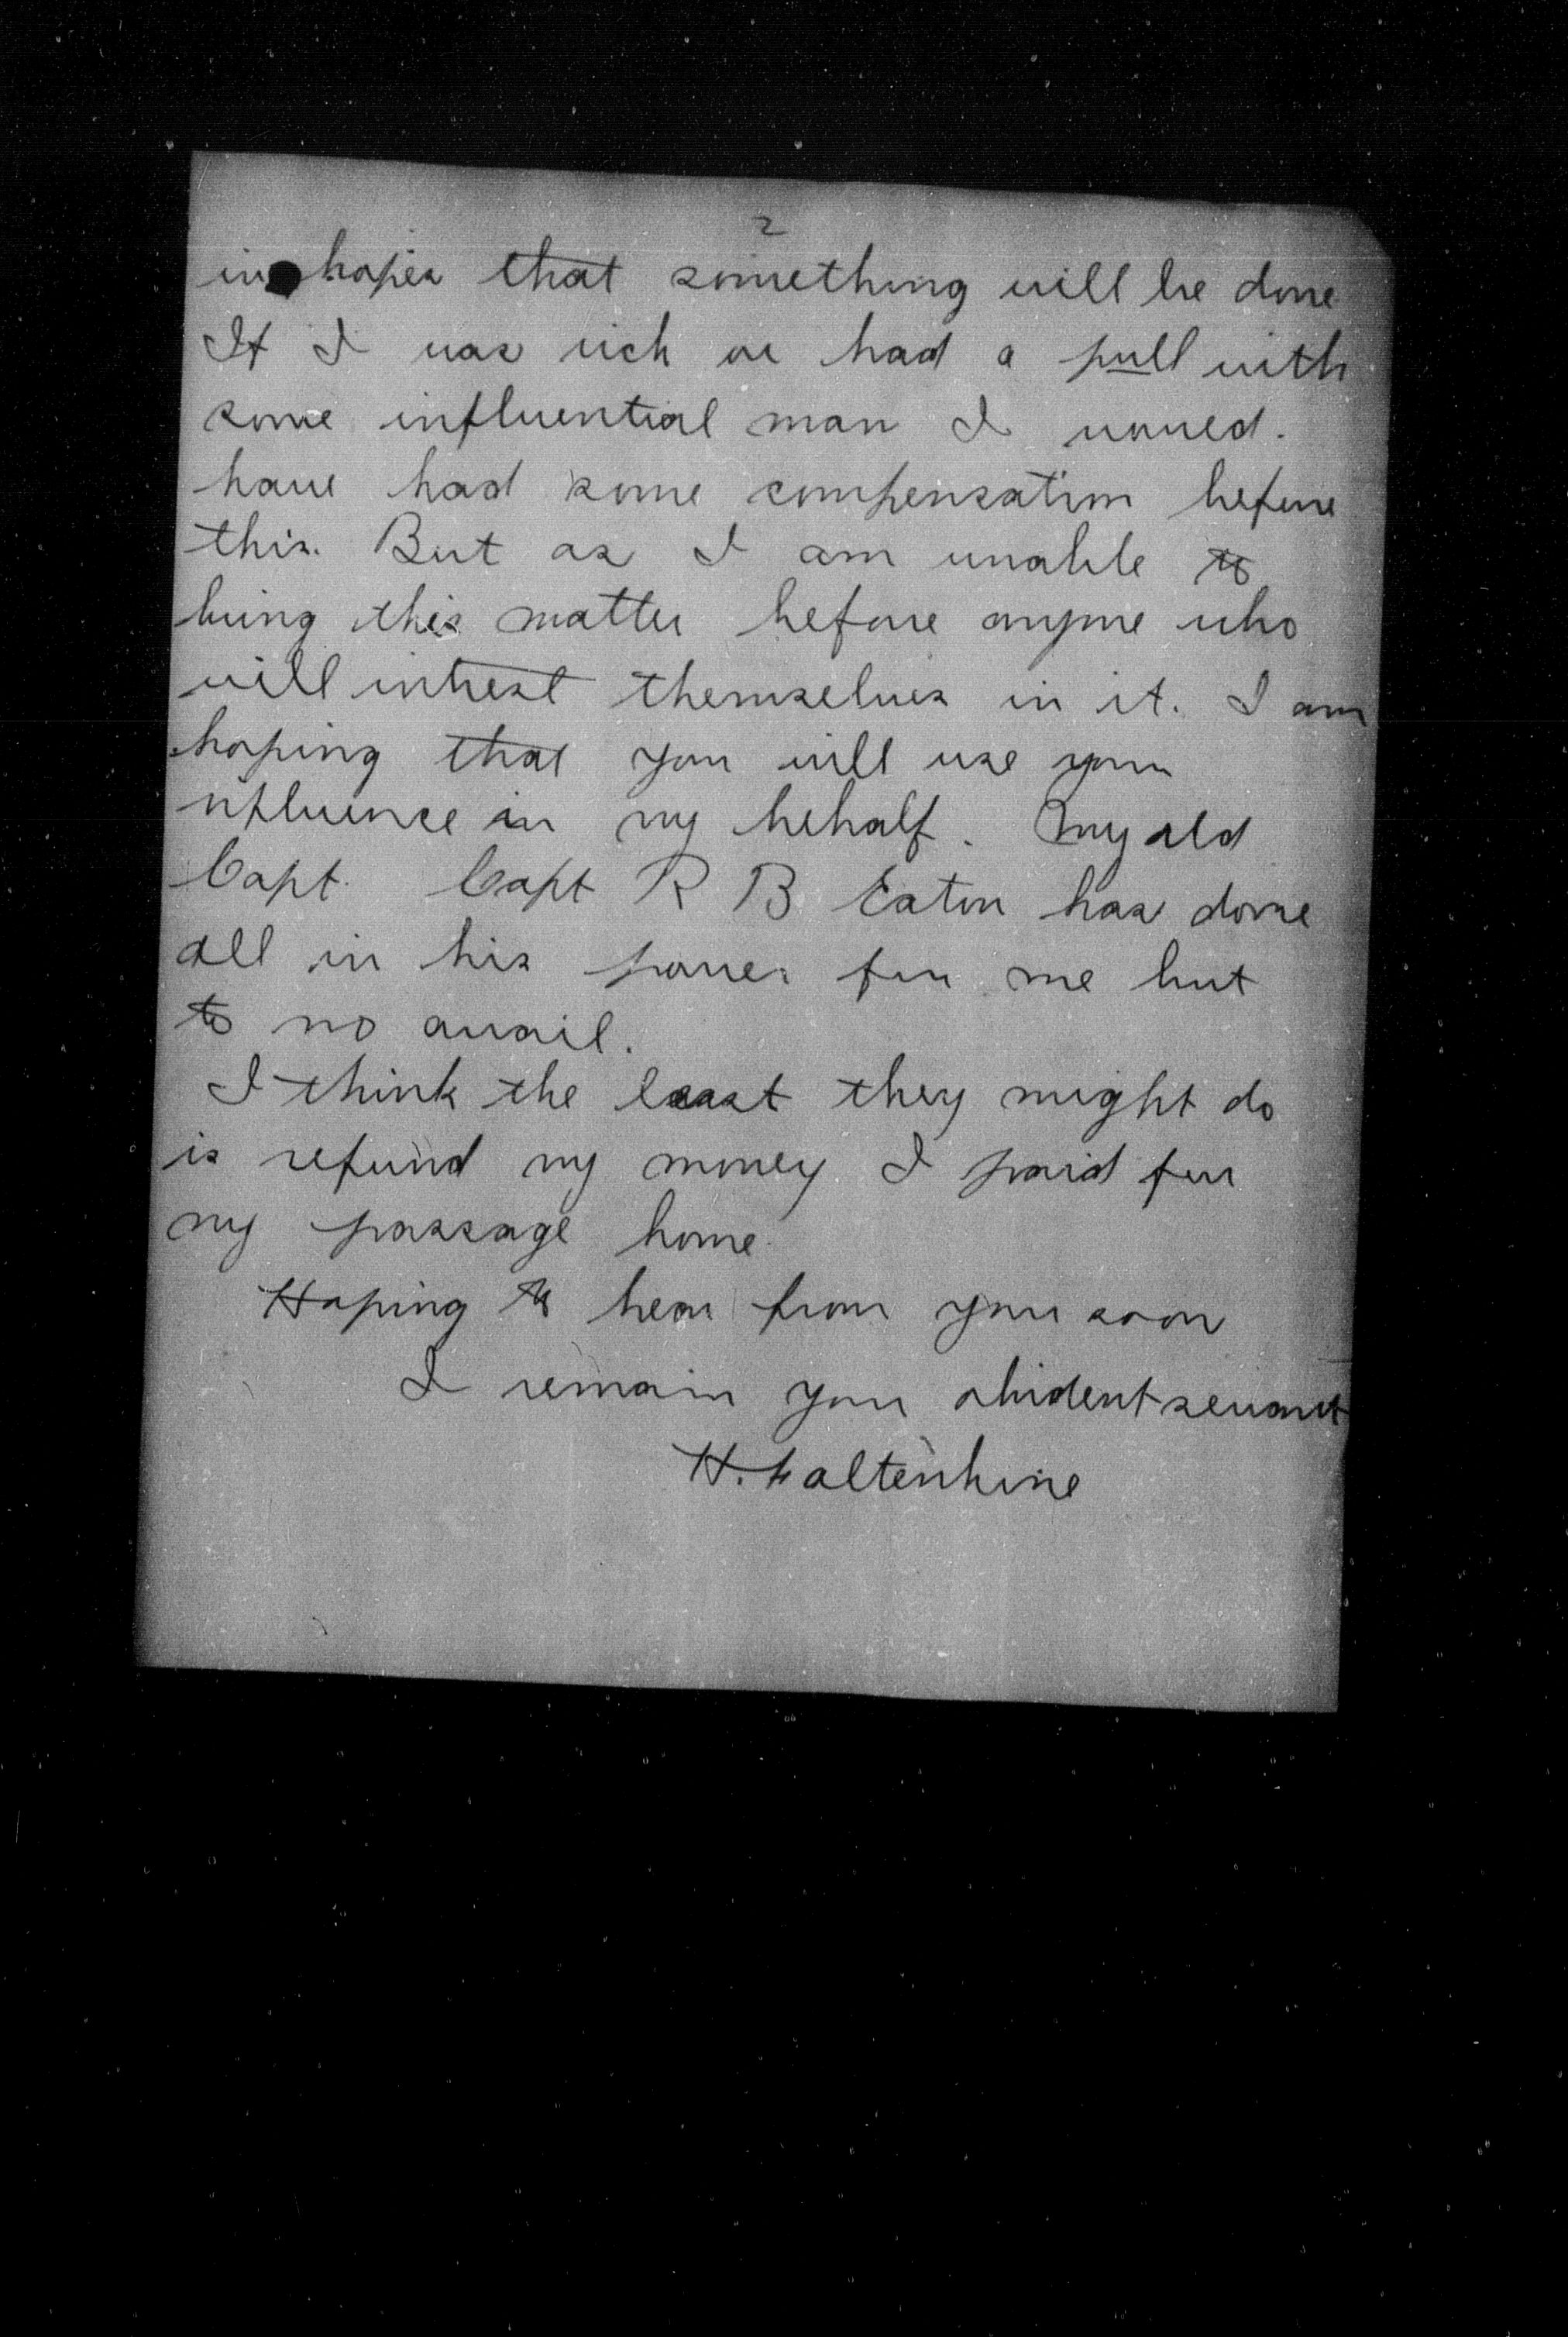 2
in hopes that something will be done
If I was rich or had a pull with
some influential man I woued.
have had some compensation before
this. But as I am unable to
bring this matter before anyone who
will intrest themselves in it. I am
hoping that you will use your
influence in my behalf. My old
Capt. Capt R B Eaton has done
all in his power for me but
to no avail.
I think the least they might do
is refund my money I paid for
my passage home.
Hoping to hear from you soon
I remain your obident servant
H. Faltenhine